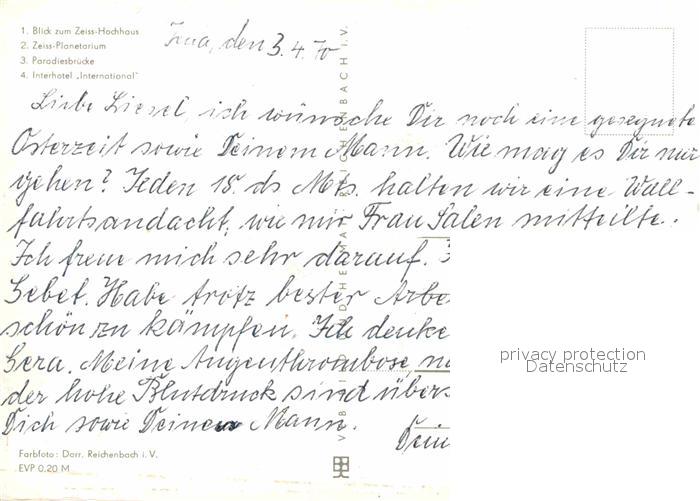 1. Blick zum Zeiss-Hochhaus
2. Zeiss-Planetarium
3. Paradiesbrücke
4. Interhotel „International"
Jena, den 3.4.70
Liebe Liesel, ich wünsche Dir noch eine gesegnete
Osterzeit sowie Deinem Mann. Wie mag es Dir nur
gehen? Jeden 18. ds Mts. halten wir eine Wall-
fahrtsandacht, wie mir Frau Salen mitteilte.
Ich freue mich sehr darauf.
Gebet. Habe trotz bester Arbe
schön zu kämpfen. Ich denke
Gera. Meine Augenthrombose,
der hohe Blutdruck sind übers
Dich sowie Deinen Mann.
Dein
VEB BILD UND HEIMAT REICHENBACH i. V.
privacy protection
Datenschutz
Farbfoto: Darr. Reichenbach i. V.
EVP 0.20 M